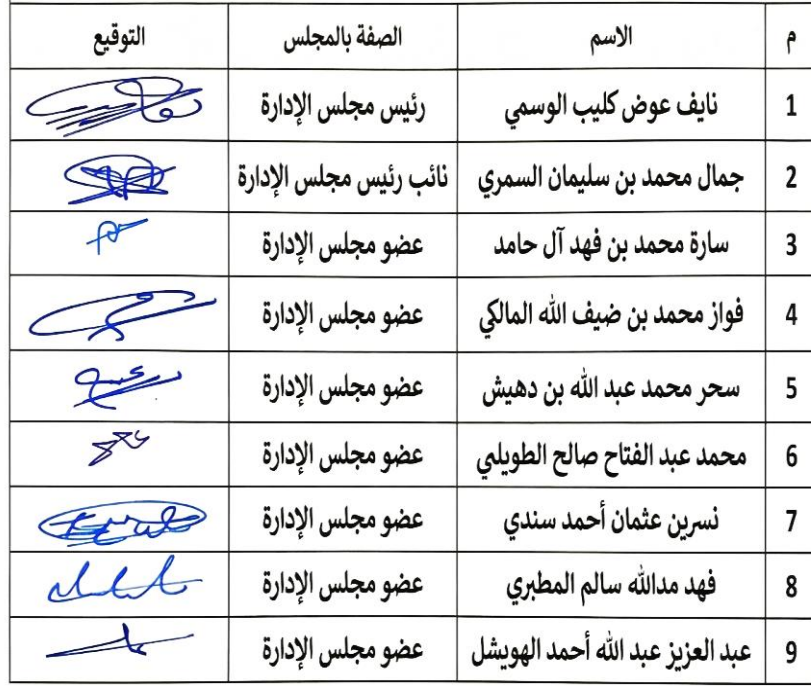 م الاسم الصفة بالمجلس التوقيع
1 نايف عوض كليب الوسمي رئيس مجلس الإدارة
2 جمال محمد بن سليمان السمري نائب رئيس مجلس الإدارة
3 سارة محمد بن فهد آل حامد عضو مجلس الإدارة
4 فواز محمد بن ضيف الله المالكي عضو مجلس الإدارة
5 سحر محمد عبد الله بن دهيش عضو مجلس الإدارة
6 محمد عبد الفتاح صالح الطويلبي عضو مجلس الإدارة
7 نسرين عثمان أحمد سندي عضو مجلس الإدارة
8 فهد مدالله سالم المطبري عضو مجلس الإدارة
9 عبد العزيز عبد الله أحمد الهويشل عضو مجلس الإدارة